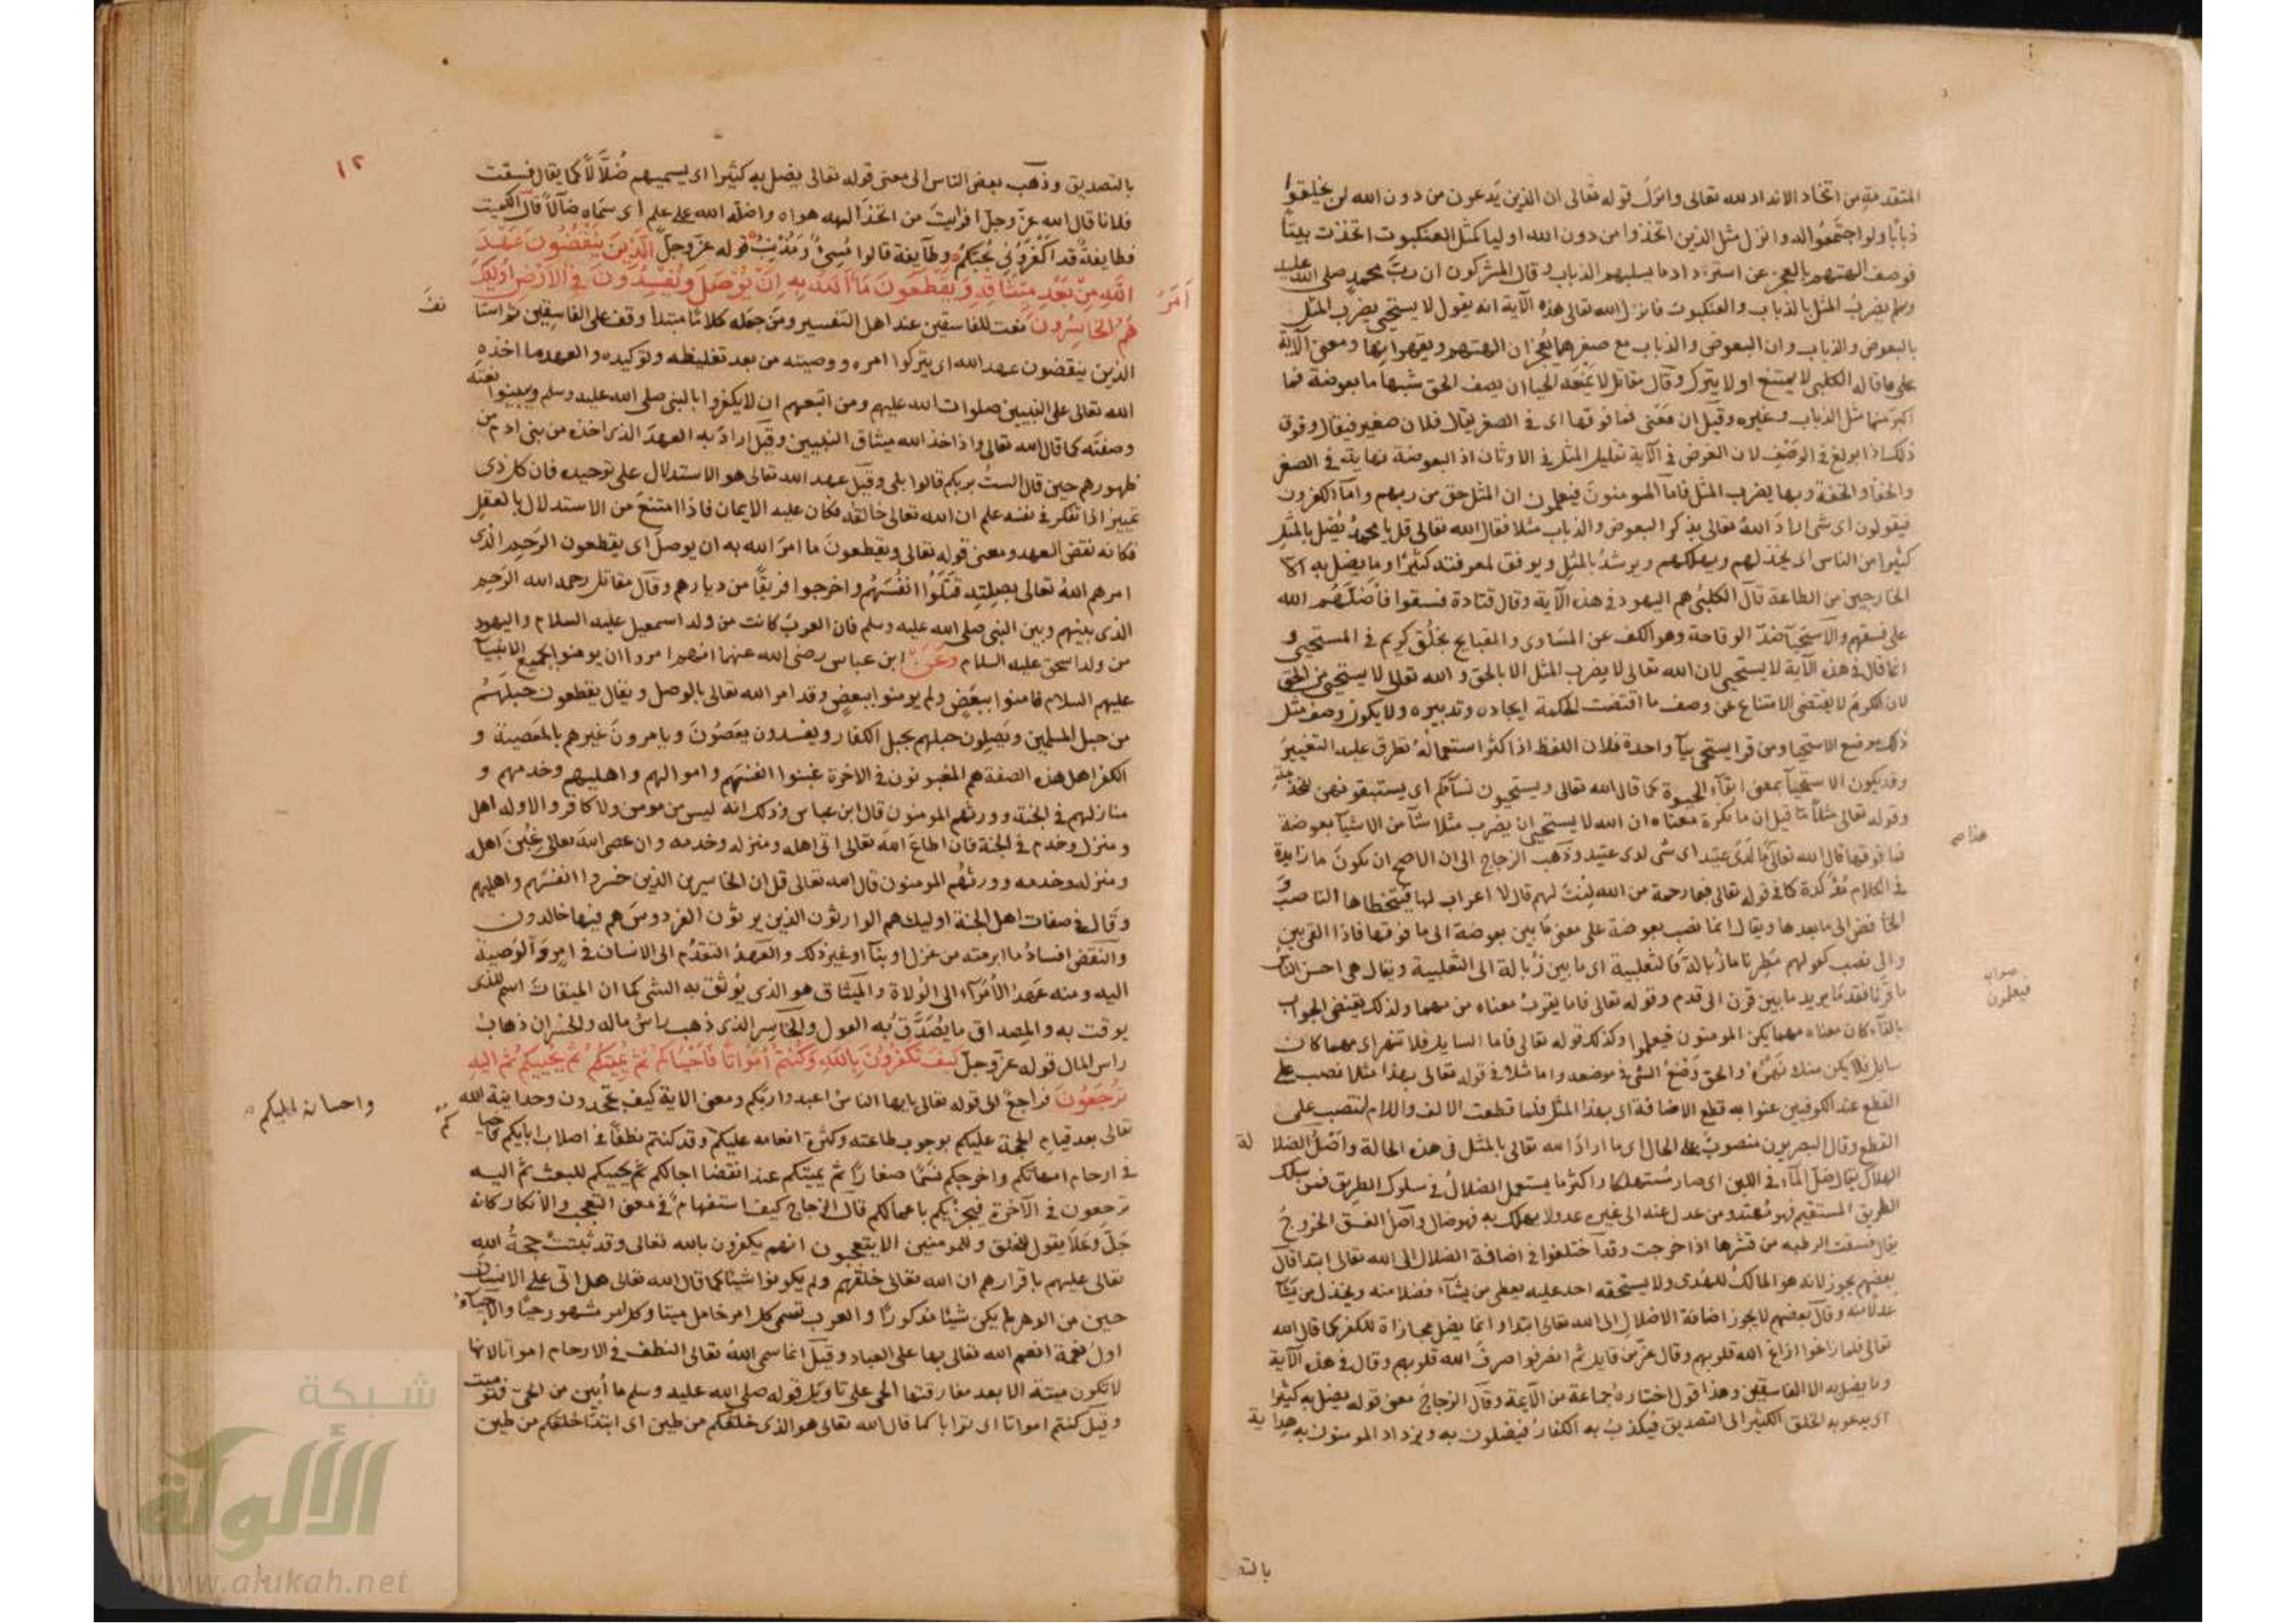 المتقدمة من اتخاذ الانداد لله تعالى وانزل قوله تعالى ان الذين يدعون من دون الله لن يخلقوا
ذبابا ولو اجتمعوا له وانزل مثل الذين اتخذوا من دون الله اوليا كمثل العنكبوت اتخذت بيتا
فوصف الهتهم بالعجز عن استرداد ما يسلبهم الذباب وقال المشركون ان رب محمد صلى الله عليه
وسلم يضرب المثل بالذباب والعنكبوت فانزل الله تعالى هذه الآية انه يقول لا يستحيى يضرب المثل
بالبعوض والذباب وان البعوض والذباب مع صغرهما يعجز ان الهتهم ويقهرانها ومعنى الآية
على ما قاله الكلبى لا يمتنع او لا يترك وقال مقاتل لا يمنعه الحيا ان يصف الحق شبها ما بعوضة فما
اكبر منها مثل الذباب وغيره وقيل ان معنى فما فوقها اى فى الصغر يقال فلان صغير فيقال وفوق
ذلك اذا بولغ فى الوصف لان الغرض فى الآية تقليل المثل فى الاوثان اذ البعوضة نهاية فى الصغر
والخفا والخفة وبها يضرب المثل فاما المومنون فيعلمون ان المثل حق من ربهم واما الكفرون
فيقولون اى شى اراد الله تعالى بذكر البعوض والذباب مثلا فقال الله تعالى قل يا محمد يضل بالمثل
كثيرا من الناس اى يخذلهم ويهلكهم ويرشد بالمثل ويوفق لمعرفته كثيرا وما يضل به الا
الخارجين من الطاعة قال الكلبى هم اليهود فى هذه الآية وقال قتادة فسقوا فاضلهم الله
على فسقهم والاستحيا ضد الوقاحة وهو الكف عن المساوى والقبايح بخلق كريم فى المستحيى و
انما قال فى هذه الآية لا يستحيى لان الله تعالى لا يضرب المثل الا بالحق والله تعالى لا يستحيى من الحق
لان الكرم لا يقتضى الامتناع عن وصف ما اقتضت الحكمة ايجاده وتدبيره ولا يكون وصف مثل
ذلك موضع الاستحيا ومن قرا يستحى بيا واحدة فلان اللفظ اذا كثر استعماله تطرق عليه التغيير
وقد يكون الاستحيا بمعنى ابقاء الحيوة كما قال الله تعالى ويستحيون نسآكم اى يستبقونهن للخدمة
وقوله تعالى مثلا ما قيل ان ما نكرة معناه ان الله لا يستحيى ان يضرب مثلا شيا من الاشيا بعوضة
فما فوقها قال الله تعالى ما لدى عتيد اى شى لدى عتيد وذهب الزجاج الى ان الاصح ان تكون ما زايدة
هذا ص
فى الكلام مؤكدة كما فى قوله تعالى فبما رحمة من الله لنت لهم قال لا اعراب لها فيتخطاها الناصب و
الخافض الى ما بعدها ويقال انما نصب بعوضة على معنى ما بين بعوضة الى ما فوقها فاذا القى بين
والى نصب كقولهم مطرنا ما زبالة فالثعلبية اى ما بين زبالة الى الثعلبية ويقال هى احسن الناس
ما قرنا فقدما يريد ما بين قرن الى قدم وقوله تعالى فاما يقرب معناه من مهما ولذلك يقتضى الجواب
صوابه
فيعلمون
بالفآء كان معناه مهما يكن المومنون فيعلموا وكذلك قوله تعالى فاما السايل فلا تنهر اى مهما كان
سايل فلا يكن منك نهى والحق وضع الشى فى موضعه واما مثلا فى قوله تعالى بهذا مثلا نصب على
القطع عند الكوفيين عنوا به قطع الاضافة اى بهذا المثل فلما قطعت الالف واللام انتصب على
القطع وقال البصريون منصوب على الحال اى ما اراد الله تعالى بالمثل فى هذه الحالة واصل الضلالة
الهلاك يقال ضل الماء فى اللبن اى صار مستهلكا واكثر ما يستعمل الضلال فى سلوك الطريق فمن سلك
الطريق المستقيم فهو مهتد ومن عدل عنه الى غيره عدولا يهلك به فهو ضال واصل الفسق الخروج
يقال فسقت الرطبه من قشرها اذا خرجت وقد اختلفوا فى اضافة الضلال الى الله تعالى ابتدا قال
بعضهم يجوز لانه هو المالك للهدى ولا يستحقه احد عليه يعطى من يشاء فضلا منه ويخذل من يشا
عدلا منه وقال بعضهم لا يجوز اضافة الاضلال الى الله تعالى ابتدا وانما يضل مجازاة للكفر كما قال الله
تعالى فلما زاغوا ازاغ الله قلوبهم وقال عز من قايل ثم انصرفوا صرف الله قلوبهم وقال فى هذه الآية
وما يضل به الا الفاسقين وهذا قول اختاره جماعة من الآيمة وقال الزجاج معنى قوله يضل به كثيرا
اى يدعو به الخلق الكثير الى التصديق فيكذب به الكفار فيضلون به ويزداد المومنون به هداية
بالتصـ
١٢
بالتصديق وذهب بعض الناس الى معنى قوله تعالى يضل به كثيرا اى يسميهم ضلالا كما يقال فسقت
فلانا قال الله عز وجل افرايت من اتخذ الهه هواه واضله الله على علم اى سماه ضالا قال الكميت
فطايفة قد اكفرونى بحبكم وطايفة قالوا مسىء ومذنب قوله عز وجل الذين ينقضون عهد
الله من بعد ميثاقه ويقطعون ما امر الله به ان يوصل ويفسدون فى الارض اولئك
هم الخاسرون نعت للفاسقين عند اهل التفسير ومن جعله كلاما مبتدا وقف على الفاسقين ثم استانف
الذين ينقضون عهد الله اى يتركوا امره ووصيته من بعد تغليظه وتوكيده والعهد ما اخذه
الله تعالى على النبيين صلوات الله عليهم ومن اتبعهم ان لا يكفروا بالنبى صلى الله عليه وسلم ويبينوا نعته
وصفته كما قال الله تعالى واذ اخذ الله ميثاق النبيين وقيل اراد به العهد الذى اخذه من بنى ادم من
ظهورهم حين قال الست بربكم قالوا بلى وقيل عهد الله تعالى هو الاستدلال على توحيده فان كل ذى
تمييز اذا تفكر فى نفسه علم ان الله تعالى خالقه فكان عليه الايمان فاذا امتنع من الاستدلال بالعقل
فكانه نقض العهد ومعنى قوله تعالى ويقطعون ما امر الله به ان يوصل اى يقطعون الرحم الذى
امرهم الله تعالى بصلته قتلوا انفسهم واخرجوا فريقا من ديارهم وقال مقاتل رحمه الله الرحم
الذى بينهم وبين النبى صلى الله عليه وسلم فان العرب كانت من ولد اسمعيل عليه السلام واليهود
من ولد اسحق عليه السلام وعن ابن عباس رضى الله عنهما انهم امروا ان يومنوا بجميع الانبيآ
عليهم السلام فامنوا ببعض ولم يومنوا ببعض وقد امر الله تعالى بالوصل ويقال يقطعون حبلهم
من حبل المسلمين ويصلون حبلهم بحبل الكفار ويفسدون يعصون ويامرون غيرهم بالمعصية و
الكفر اهل هذه الصفة هم المغبونون فى الاخرة غبنوا انفسهم واموالهم واهليهم وخدمهم و
منازلهم فى الجنة وورثهم المومنون قال ابن عباس وذلك انه ليس من مومن ولا كافر الا وله اهل
ومنزل وخدم فى الجنة فان اطاع الله تعالى اتى اهله ومنزله وخدمه وان عصى الله تعالى غبن اهله
ومنزله وخدمه وورثهم المومنون قال الله تعالى قل ان الخاسرين الذين خسروا انفسهم واهليهم
وقال فى صفات اهل الجنة اوليك هم الوارثون الذين يرثون الفردوس هم فيها خالدون
والنقض افساد ما ابرمته من غزل او بنآ او غير ذلك والعهد التقدم الى الانسان فى امر والوصية
اليه ومنه عهد الامرآء الى الولاة والميثاق هو الذى يوثق به الشى كما ان الميقات اسم للذى
يوقت به والمصداق ما يصدق به القول والخاسر الذى ذهب راس ماله والخسران ذهاب
راس المال قوله عز وجل كيف تكفرون بالله وكنتم امواتا فاحياكم ثم يميتكم ثم يحييكم ثم اليه
ترجعون راجع الى قوله تعالى يايها الناس اعبدوا ربكم ومعنى الاية كيف تجحدون وحدانية الله
تعالى بعد قيام الحجة عليكم بوجوب طاعته وكثرة انعامه عليكم وقد كنتم نطفا فى اصلاب ابايكم فاحياكم
واحسانه اليكم
فى ارحام امهاتكم واخرجكم نسما صغارا ثم يميتكم عند انقضا اجالكم ثم يحييكم للبعث ثم اليه
ترجعون فى الآخرة فيجزيكم باعمالكم قال الزجاج كيف استفهام فى معنى التعجب والانكار كانه
جل وعلا يقول للخلق وللمومنين الا يتعجبون انهم يكفرون بالله تعالى وقد ثبتت حجة الله
تعالى عليهم باقرارهم ان الله تعالى خلقهم ولم يكونوا شيئا كما قال الله تعالى هل اتى على الانسان
حين من الدهر لم يكن شيئا مذكورا والعرب تسمى كل امر خامل ميتا وكل امر مشهور حيا والاحيآء
اول نعمة انعم الله تعالى بها على العباد وقيل انما سمى الله تعالى النطف فى الارحام امواتا لانها
لا تكون ميتة الا بعد مفارقتها الحى على تاويل قوله صلى الله عليه وسلم ما أبين من الحى فهو ميت
وقيل كنتم امواتا اى ترابا كما قال الله تعالى هو الذى خلقكم من طين اى ابتدا خلقكم من طين
شبكة
الألوكة
www.alukah.net